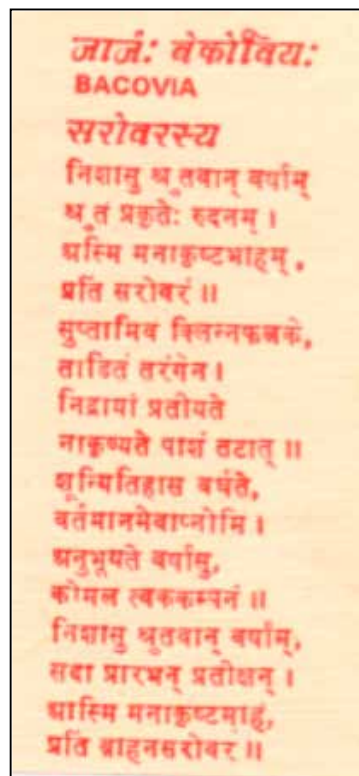 जार्ज: बेकोविय:
BACOVIA
सरोवरस्य
निशासु श्रुतवान् वर्षाम्
श्रुत प्रकृतेः रुदनम् ।
अस्मि मनाकृष्टमाहम्,
प्रति सरोवरं ॥
सुप्तामिव क्लिन्नफलके,
ताडितं तरंगेन ।
निद्रायां प्रतीयते
नाकृष्यते पाशं तटात् ॥
शून्यितिहास वर्धते,
वर्तमानमेवाप्नोमि ।
अनुभूयते वर्षासु,
कोमल त्वककम्पनं ॥
निशासु श्रुतवान् वर्षाम्,
सदा प्रारभन् प्रतीक्षन् ।
आस्मि मनाकृष्टमाहं,
प्रति